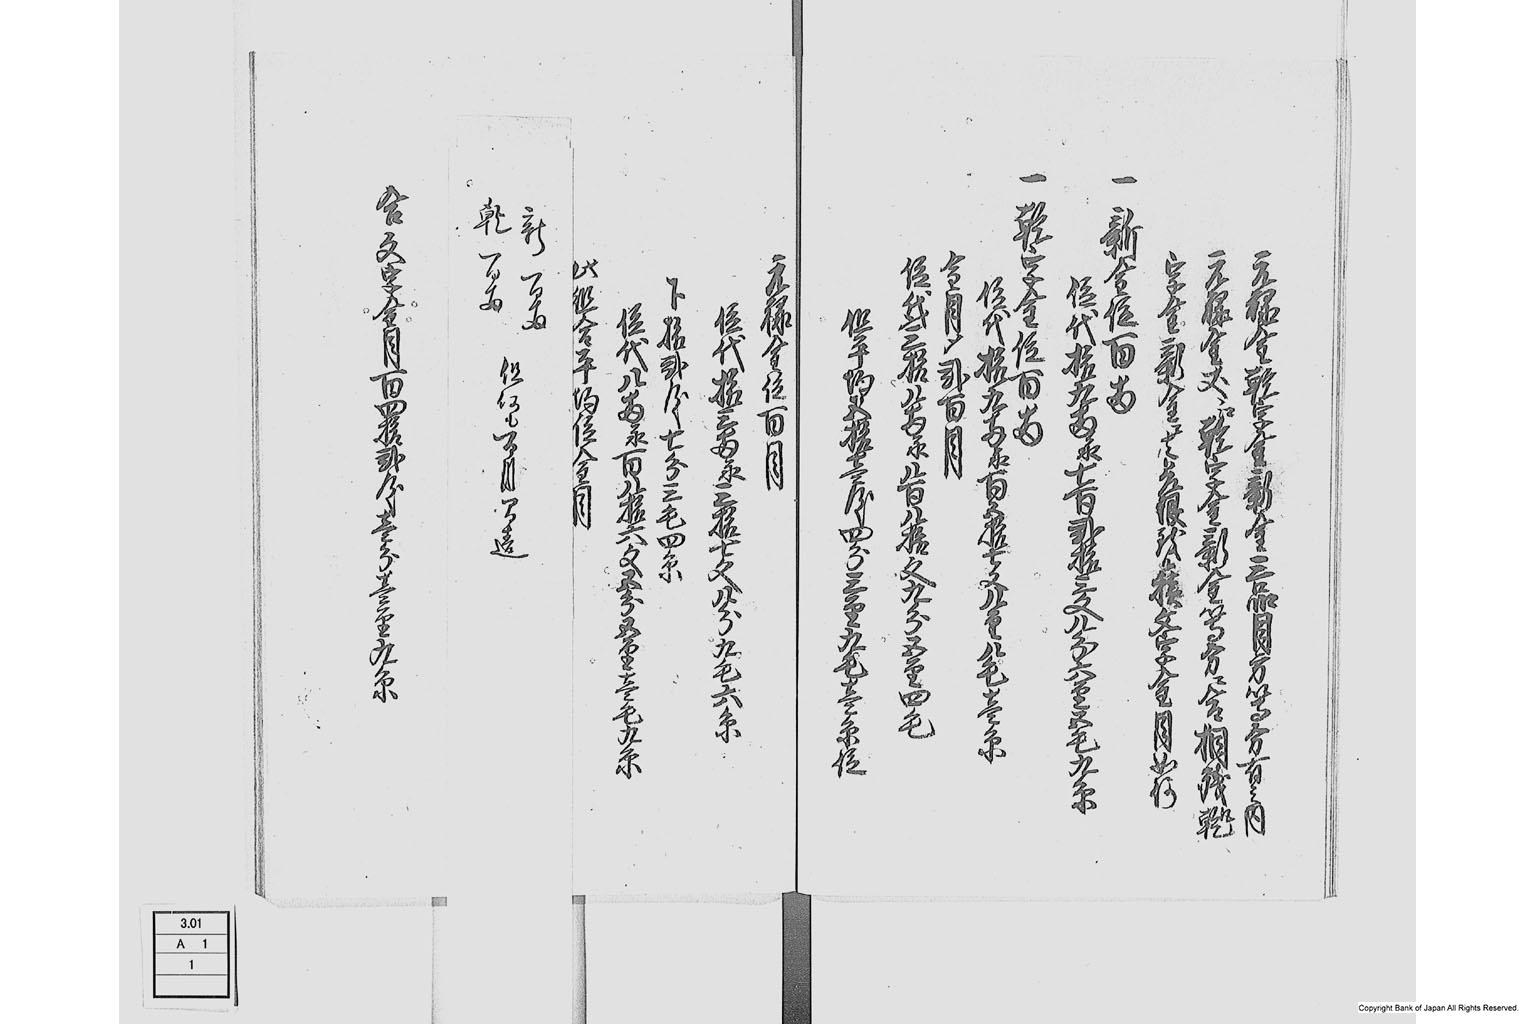 元禄金乾字金新金三品目方等分有之内
元禄金又ハ乾字金新金等分ニ合相減乾
字金新金
文字金目如何
一 新金位百両
位代拾九両永七百弐拾三文八分六里五毛九糸
一 乾字金位百両
位代拾九両永百九拾七文八里八毛壱糸
合目〆弐百目
位代三拾八両永八百八拾文九分五里四毛
但平均五拾壱匁四分三里九毛壱糸位
元禄金位百目
位代拾三両永三拾七文八分九毛六糸
下拾弐匁七分三毛四糸
位代八両永百八拾六文五分五里壱毛九糸
此組合平均位金目
新 百両
乾 百両
合文字金目百四拾弐匁壱分壱里九糸
3.01
A 1
1
Copyright Bank of Japan All Rights Reserved.